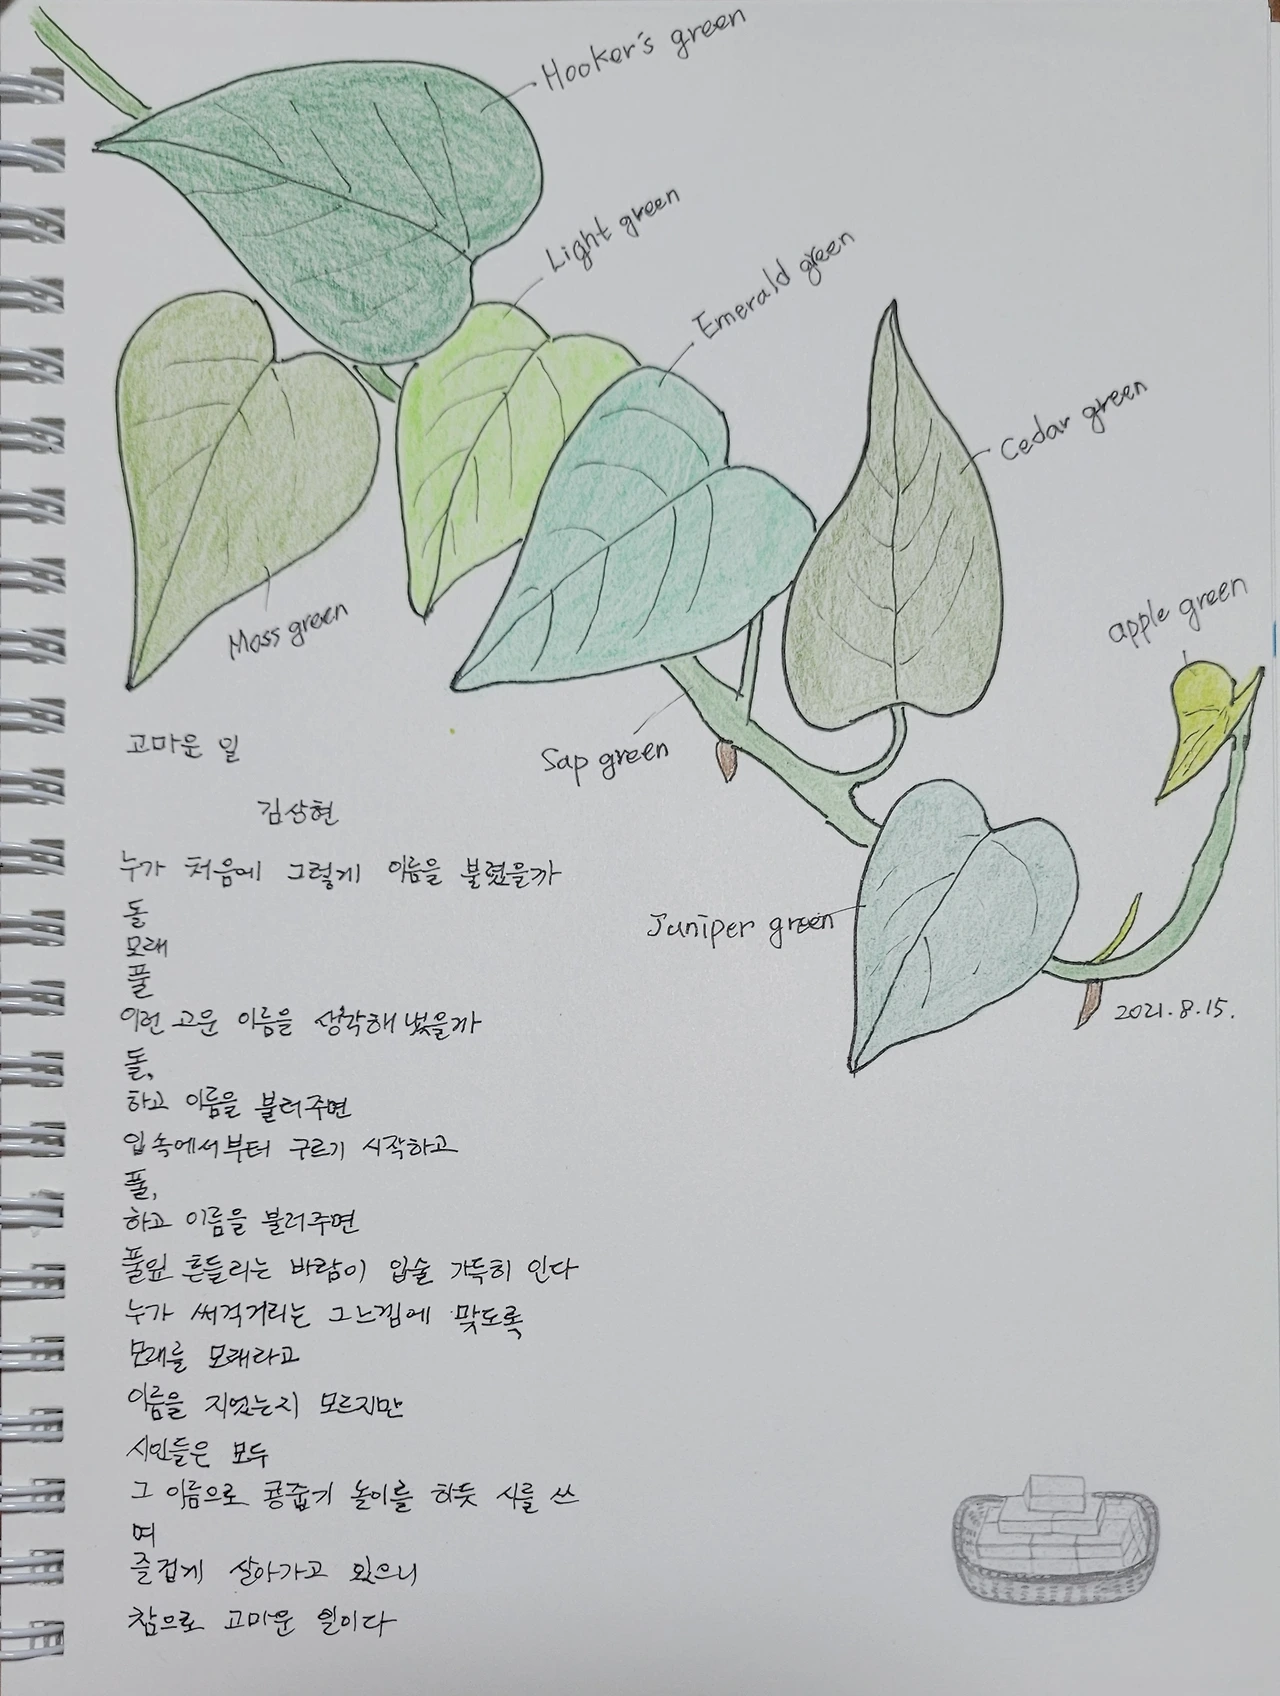 Hooker's green
Light green
Emerald green
Cedar green
apple green
Moss green
Sap green
Juniper green
2021.8.15.
고마운 일
김상현
누가 처음에 그렇게 이름을 불렀을까
돌
모래
풀
이런 고운 이름을 생각해 냈을까
돌,
하고 이름을 불러주면
입속에서부터 구르기 시작하고
풀,
하고 이름을 불러주면
풀잎 흔들리는 바람이 입술 가득히 인다
누가 써걱거리는 그 느낌에 맞도록
모래를 모래라고
이름을 지었는지 모르지만
시인들은 모두
그 이름으로 콩줍기 놀이를 하듯 시를 쓰
며
즐겁게 살아가고 있으니
참으로 고마운 일이다